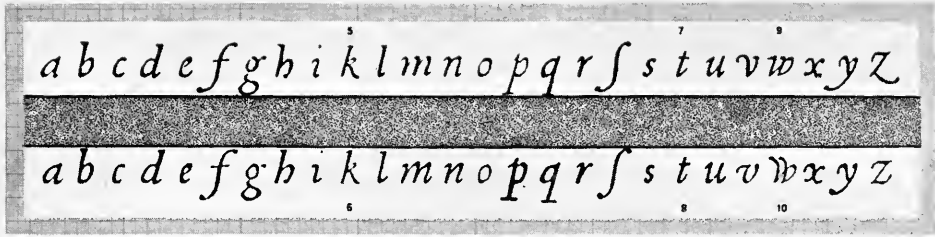 5 7 9
a b c d e f g h i k l m n o p q r ſ s t u v w x y z
a b c d e f g h i k l m n o p q r ſ s t u v w x y z
6 8 10